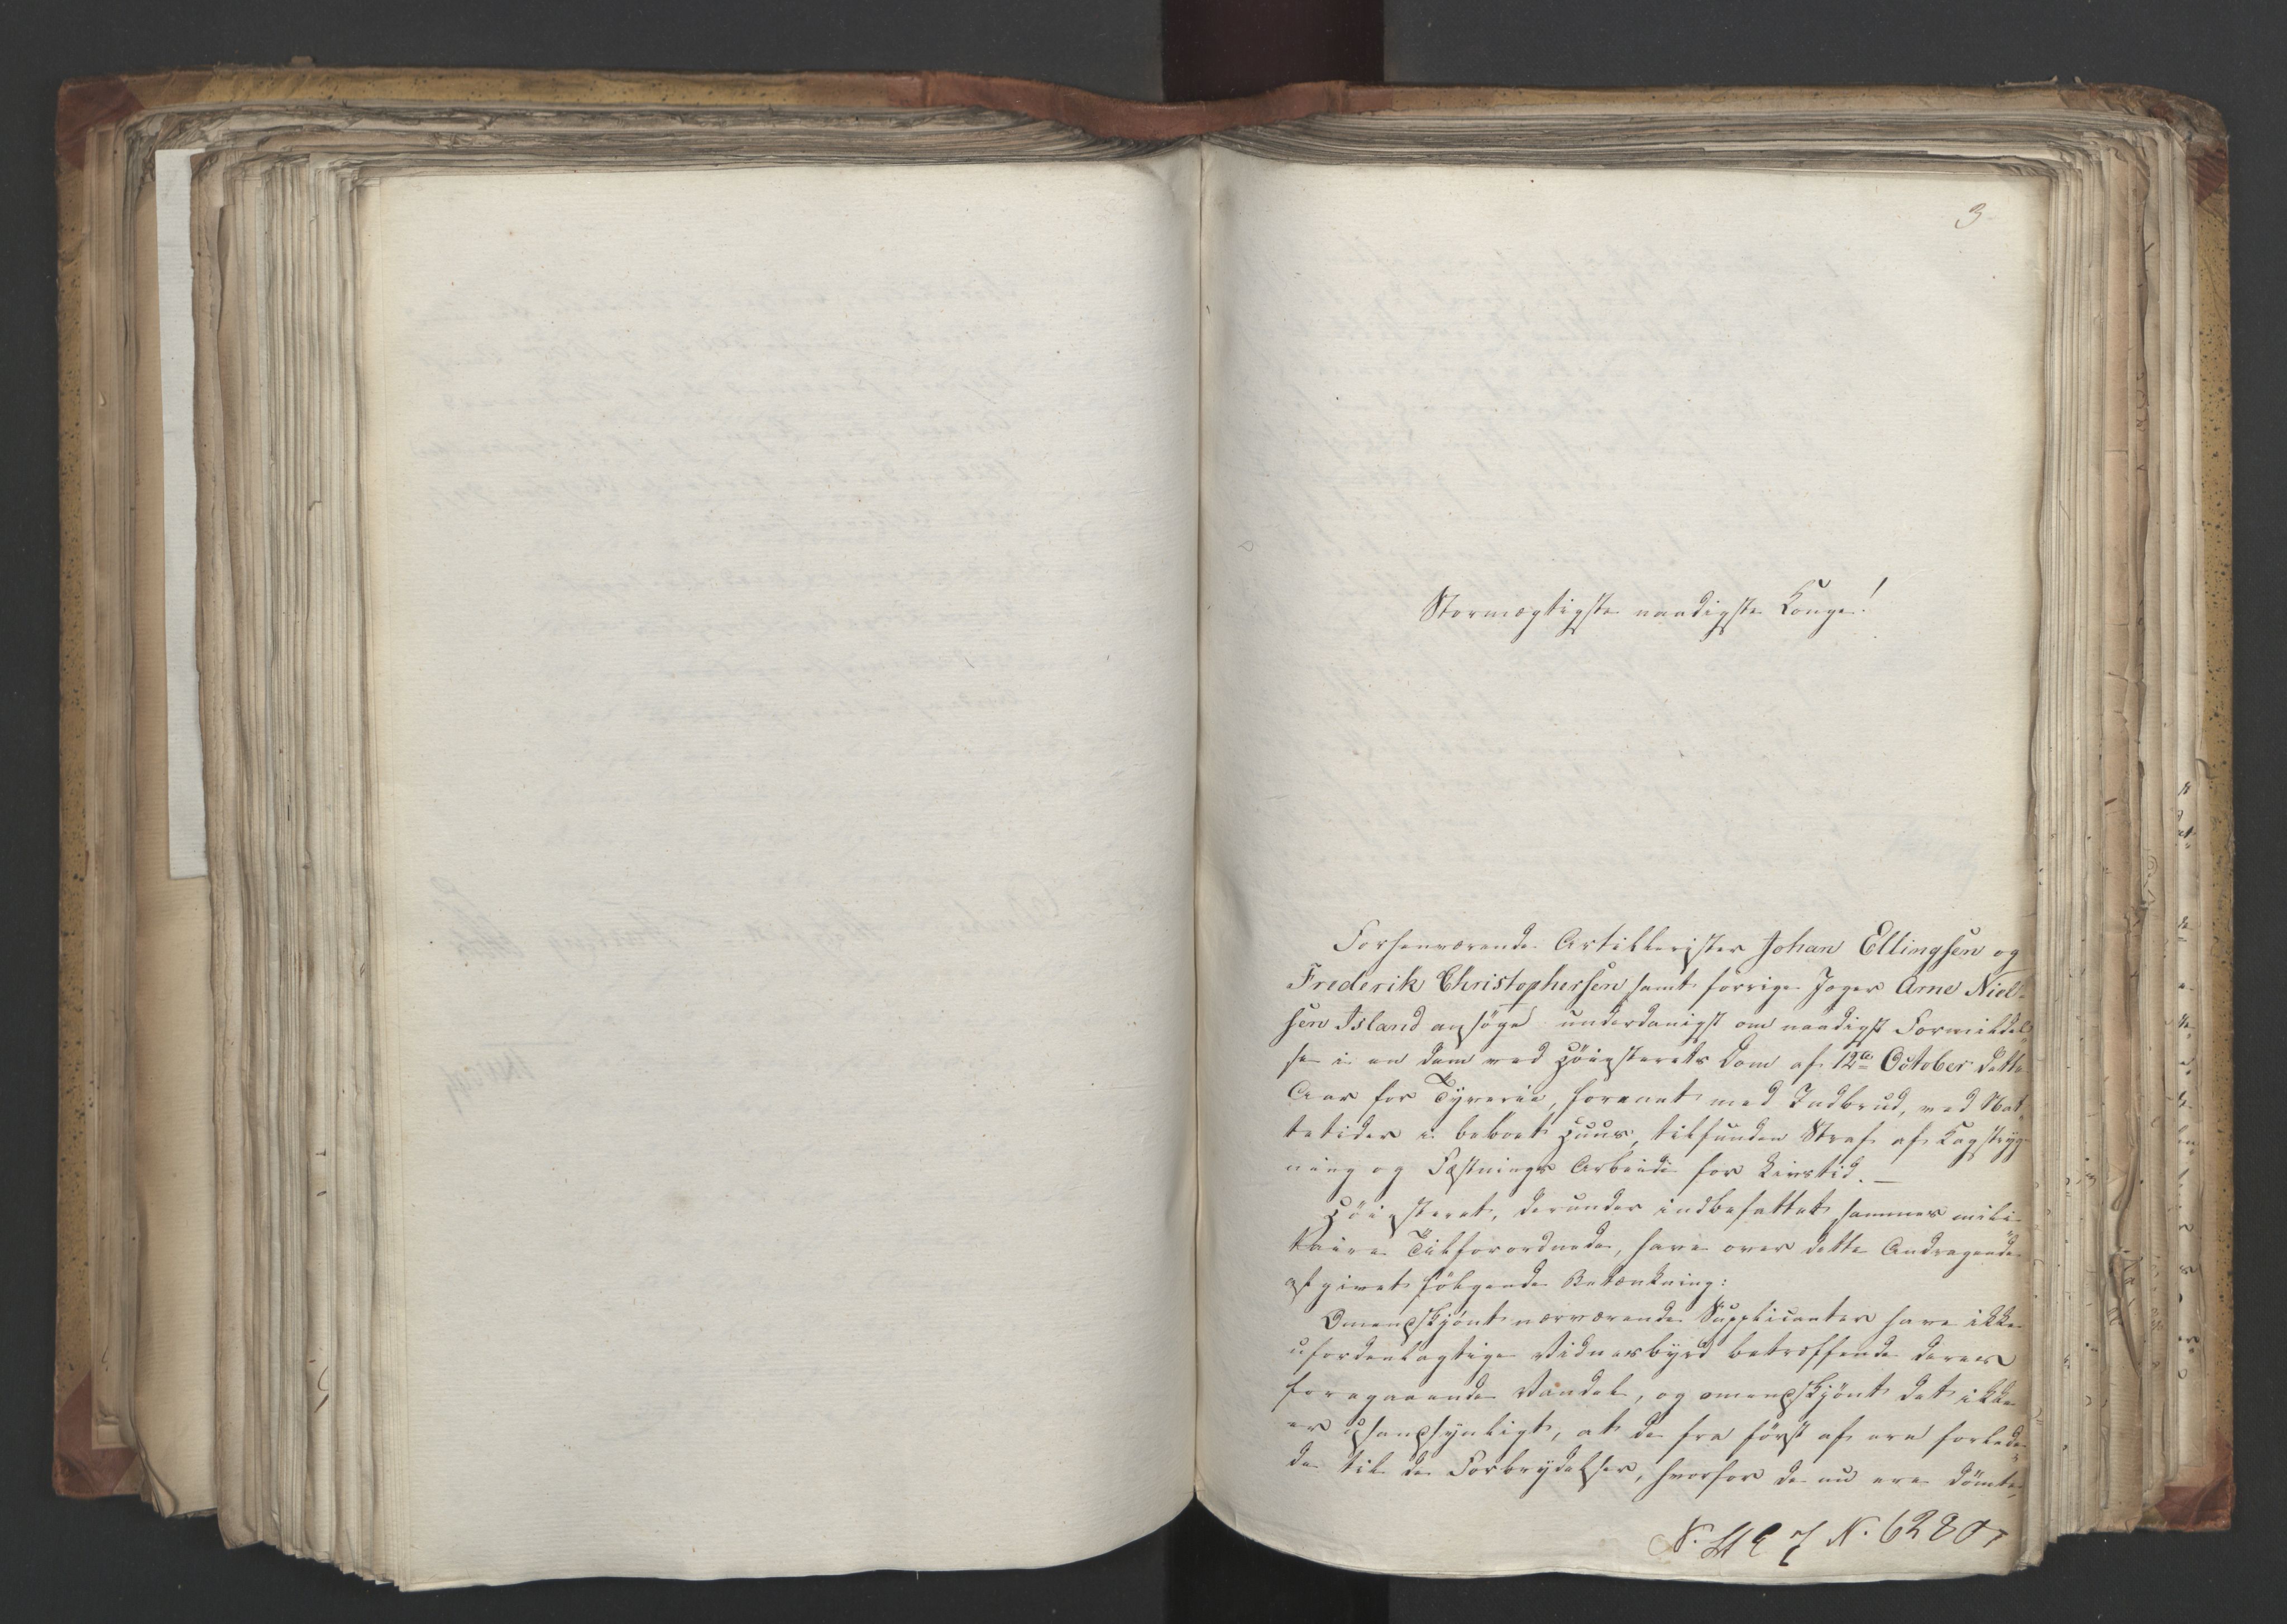 3
Stormægtigste naadigste Konge!
Forhenværende Artillerister Johan Ellingsen og
Frederik Christophersen samt forrige Jæger Arne Niel-
sen Island ansøge underdanigst om naadigst Formildel-
se i en dem ved Høiesterets Dom af 12te October dette
Aar for Tyverie, forenet med Indbrud, ved Nat-
tetider i beboet Huus, tilfunden Straf af Kagstryg-
ning og Fæstnings Arbeide for Livstid. –
Høiesteret, derunder indbefattet sammes mili-
taire Tilforordnede, have over dette Andragende
afgivet følgende Betænkning:
Omendskjønt nærværende Supplicanter have ikke
ufordeelagtige Vidnesbyrd betræffende deres
foregaaende Vandel, og omendskjønt det ikke
er usandsynligt, at de fra først af ere forlede-
de til de Forbrydelser, hvorfor de nu ere dømte,
N. 6280